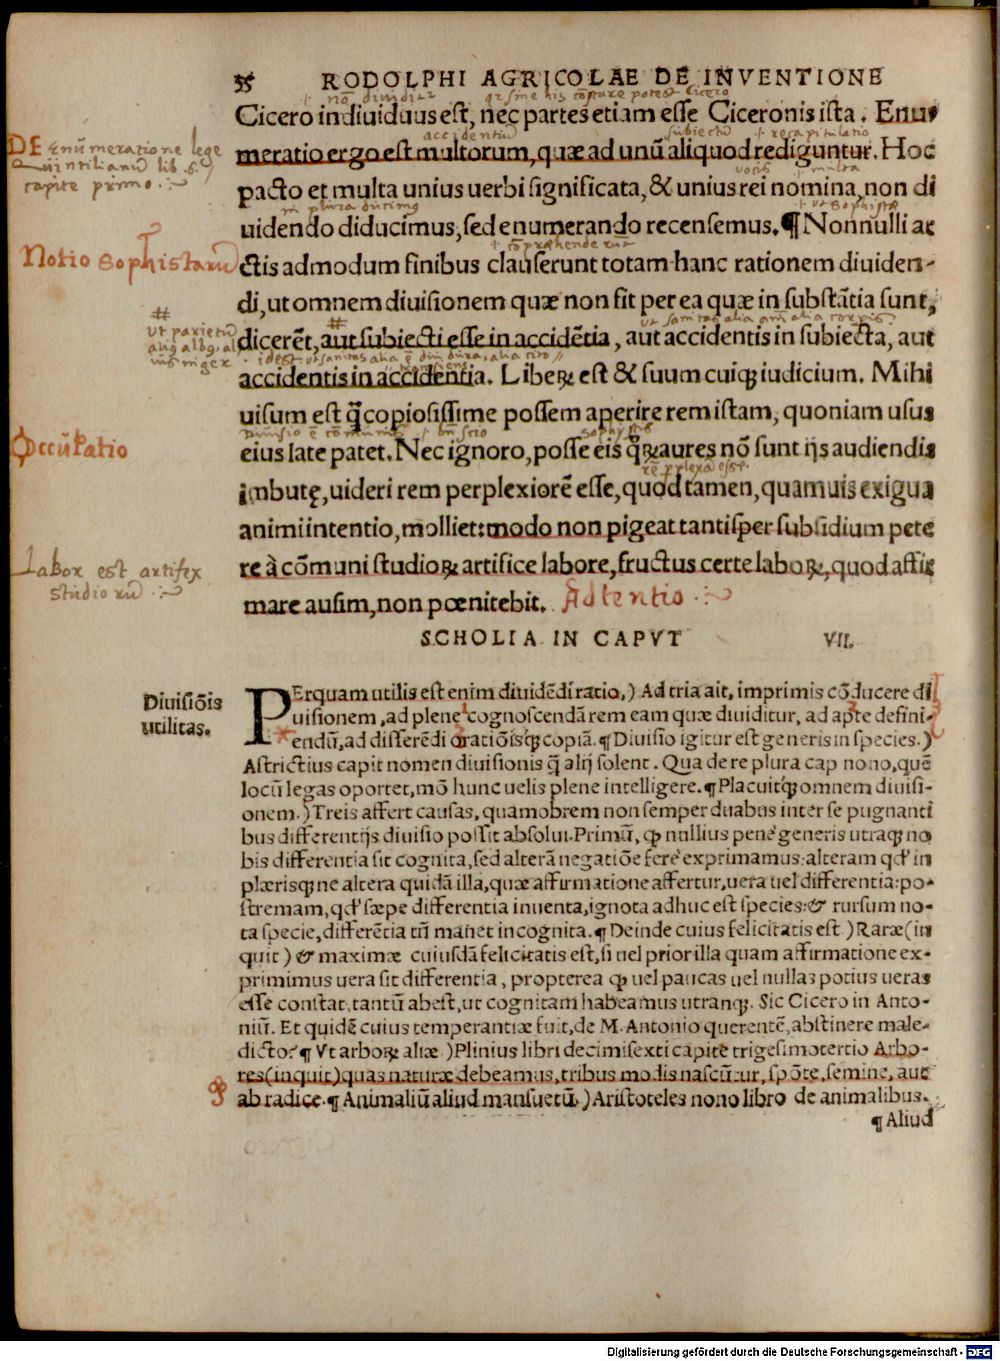 RODOLPHI AGRICOLAE DE INVENTIONE
Cicero indiuiduus est, nec partes etiam esse Ciceronis ista. Enu-
meratio ergo est multorum, quæ ad unũ aliquod rediguntur. Hoc
pacto et multa unius uerbi significata, & unius rei nomina, non di
uidendo diducimus, sed enumerando recensemus. ¶ Nonnulli ar
ctis admodum finibus clauserunt totam hanc rationem diuiden-
di, ut omnem diuisionem quæ non fit per ea quæ in substãtia sunt,
dicerẽt, aut subiecti esse in accidẽtia, aut accidentis in subiecta, aut
accidentis in accidentia. Liberꝝ est & suum cuiqꝫ iudicium. Mihi
uisum est q̃ copiosissime possem aperire rem istam, quoniam usus
eius late patet. Nec ignoro, posse eis qꝝ aures nõ sunt ijs audiendis
imbutę, uideri rem perplexiorẽ esse, quod tamen, quamuis exigua
animi intentio, molliet: modo non pigeat tantisper subsidium pete
re à cõmuni studioꝝ artifice labore, fructus certe laboꝝ, quod affir
mare ausim, non pœnitebit. Adtentio
DE Enũmeratione lege
Quintilianũ lib. 6.
capite primo.
Notio Sophistarũ
Occũpatio
Labor est artifex
studiorũ
SCHOLIA IN CAPVT VII.
Diuisiõis
utilitas.
PErquam utilis est enim diuidẽdi ratio,) Ad tria ait, imprimis cõducere di
uisionem, ad plene cognoscendã rem eam quæ diuiditur, ad apte defini-
endũ, ad differẽdi oratiõisqꝫ copiã. ¶ Diuisio igitur est generis in species.)
Astrictius capit nomen diuisionis q̃ alij solent. Qua de re plura cap nono, quẽ
locũ legas oportet, mõ hunc uelis plene intelligere. ¶ Placuitqꝫ omnem diuisi-
onem.) Treis affert causas, quamobrem non semper duabus inter se pugnanti
bus differentijs diuisio possit absolui. Primũ, ꝙ nullius penè generis utraqꝫ no
bis differentia sit cognita, sed alterã negatiõe ferè exprimamus: alteram qđ in
plærisqꝫ ne altera quidã illa, quæ affirmatione affertur, uera uel differentia: po-
stremam, qđ sæpe differentia inuenta, ignota adhuc est species: & rursum no-
ta specie, differẽtia tñ manet incognita. ¶ Deinde cuius felicitatis est.) Raræ (in
quit) & maximæ cuiusdã felicitatis est, si uel prior illa quam affirmatione ex-
primimus uera sit differentia, propterea ꝙ uel paucas uel nullas potius ueras
esse constat, tantũ abest, ut cognitam habeamus utranqꝫ. Sic Cicero in Anto-
niũ. Et quidẽ cuius temperantiæ fuit, de M. Antonio querentẽ, abstinere male-
dicto? ¶ Vt arboꝝ aliæ.) Plinius libri decimisexti capite trigesimotertio Arbo-
res (inquit) quas naturæ debeamus, tribus modis nascũtur, spõte, semine, aut
ab radice. ¶ Animaliũ aliud mansuetũ.) Aristoteles nono libro de animalibus.
¶ Aliud
Digitalisierung gefördert durch die Deutsche Forschungsgemeinschaft - DFG